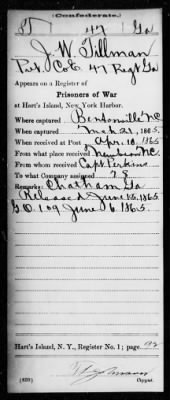 (Confederate.)
T 47 Ga
J. W. Tillman
Pvt. Co E, 47 Regt Ga
Appears on a Register of
Prisoners of War
at Hart's Island, New York Harbor.
Where captured Bentonville N.C.
When captured Mch 21, 1865.
When received at Post Apr. 10, 1865
From what place received Newbern N.C.
From whom received Capt Perkins
To what Company assigned
Remarks: Chatham Ga
Released June 15, 1865
G.O. 109 June 6, 1865.
Hart's Island, N. Y., Register No. 1; page
(639)
Copyist.